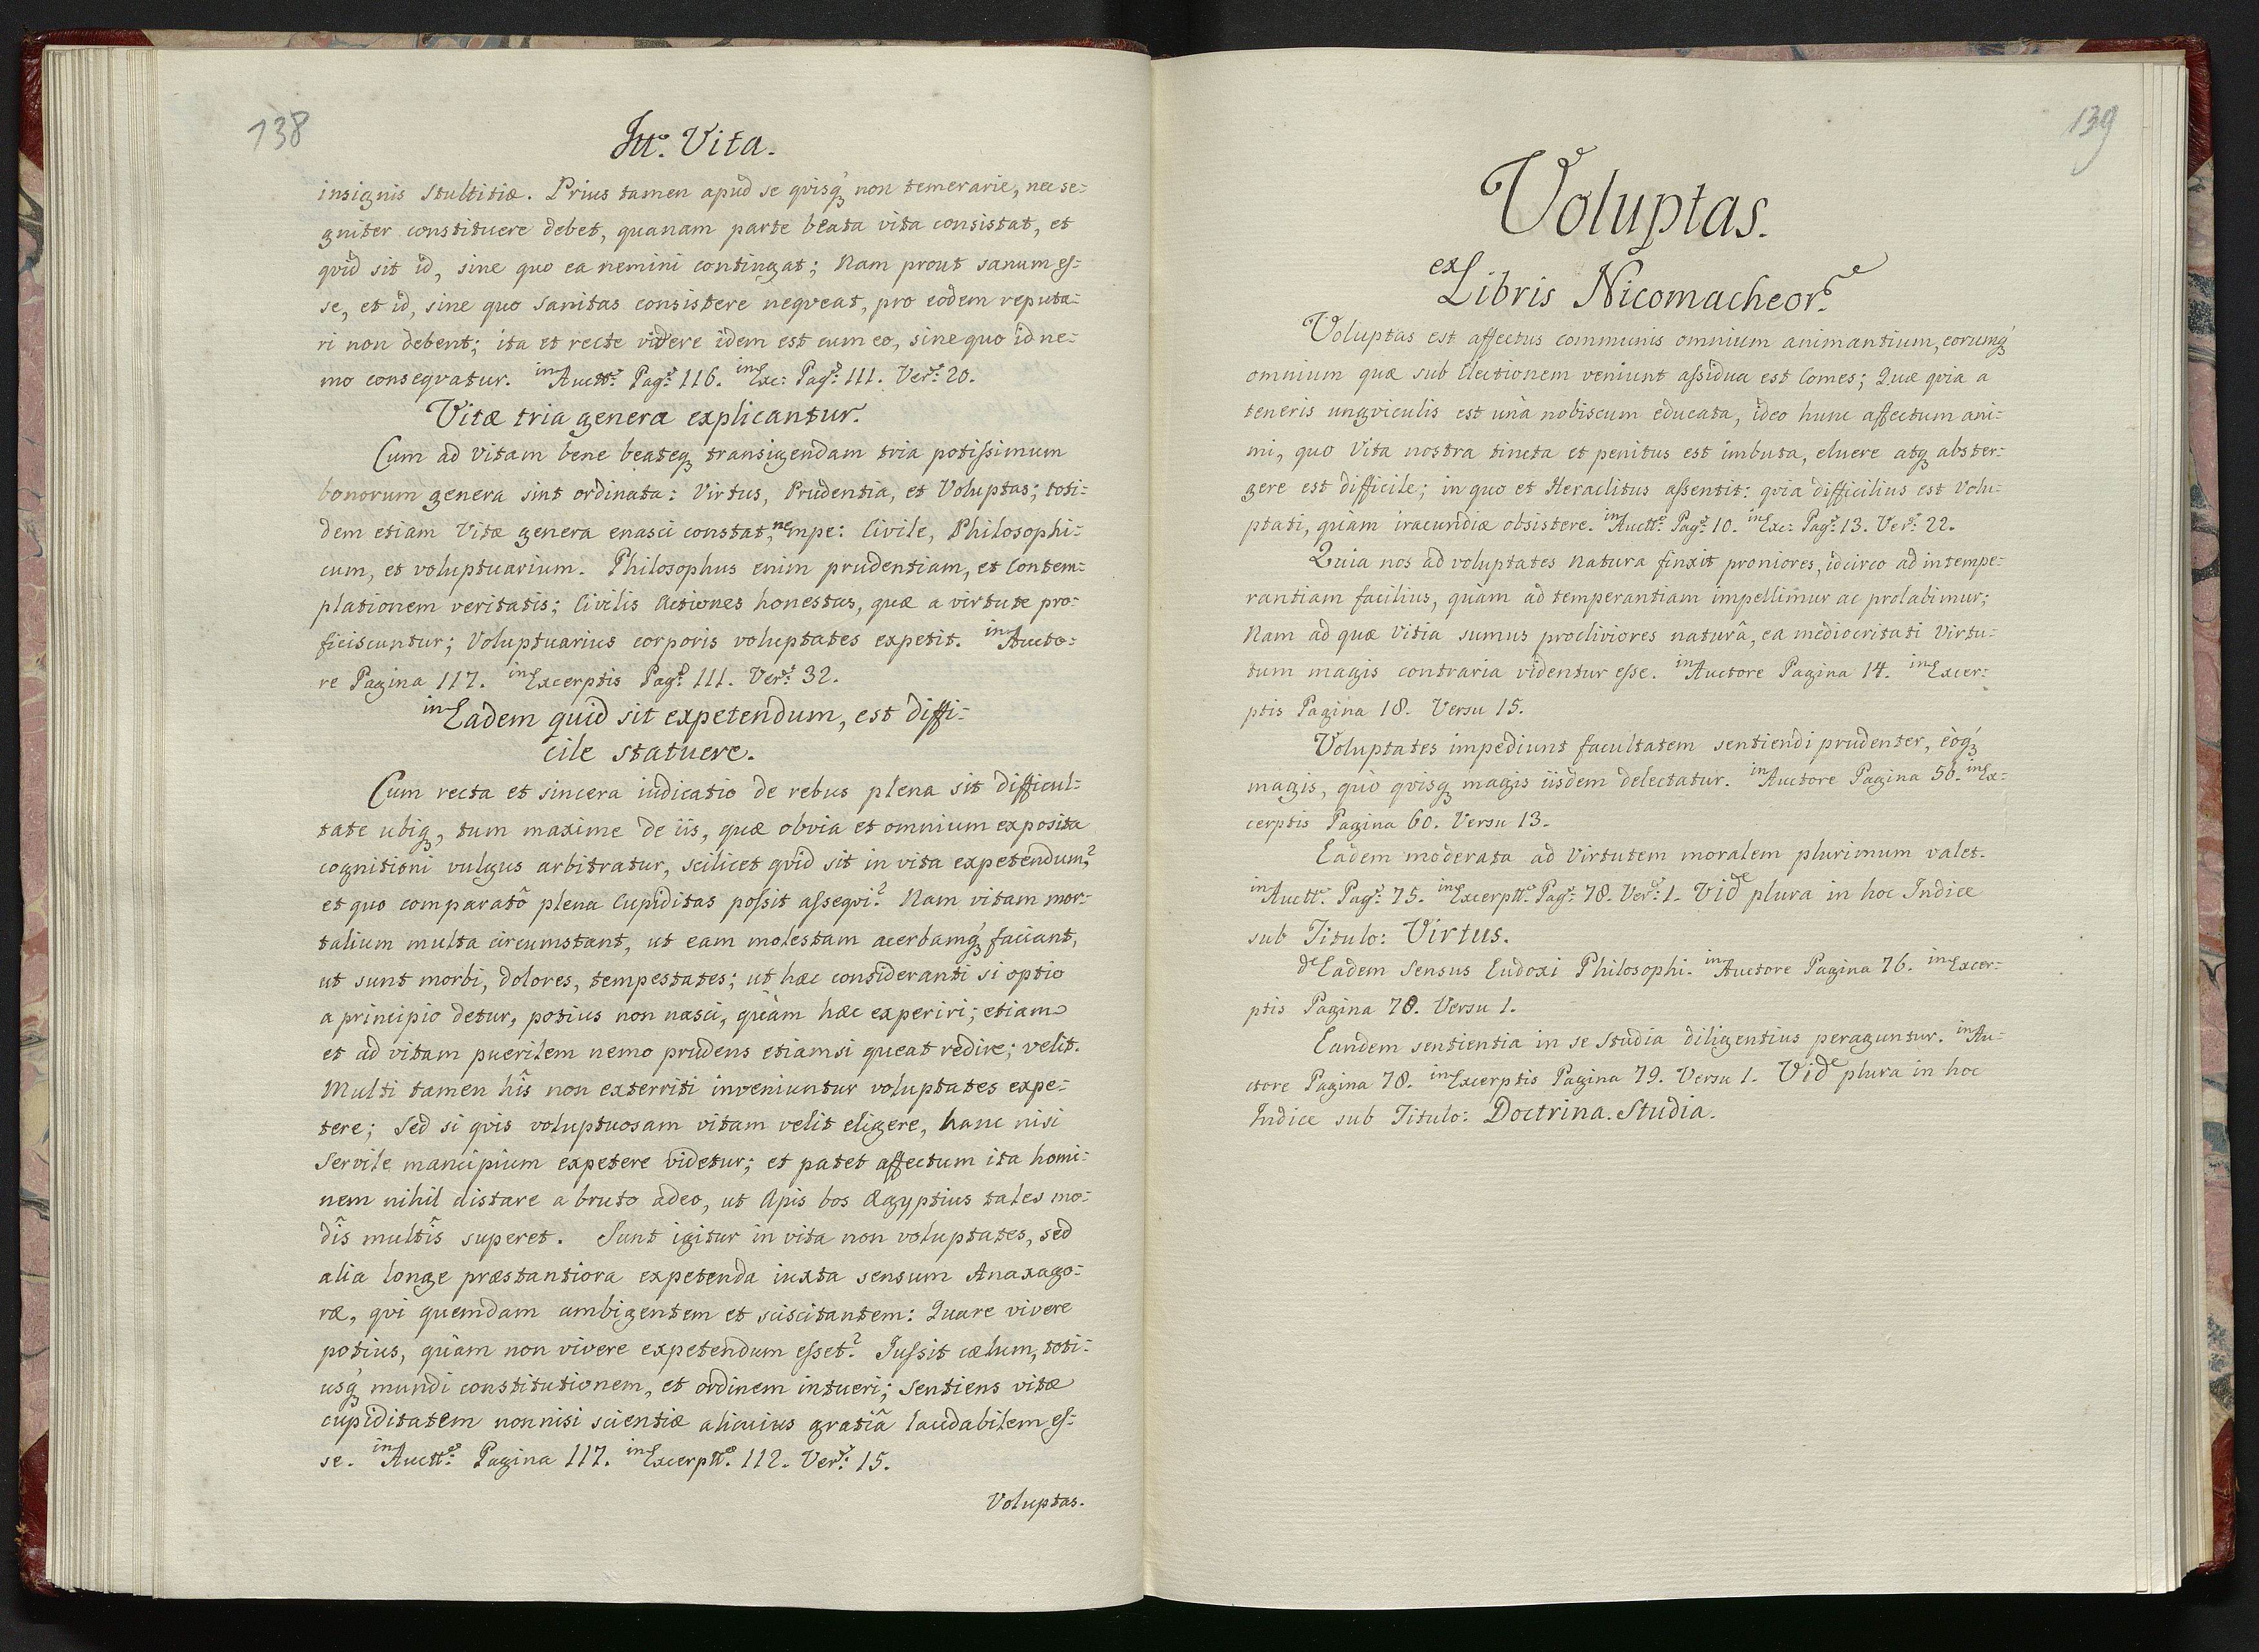 138
Itt. Vita.
insignis stultitiæ. Prius tamen apud se qvisq́ꝫ non temerarie, nec se-
gniter constituere debet, quanam parte beata vita consistat, et
qvid sit id, sine quo ea nemini contingat; Nam prout sanum es-
se, et id, sine quo sanitas consistere neqveat, pro eodem reputa-
ri non debent; ita et recte videre idem est cum eo, sine quo id ne-
mo conseqvatur. in Auctt: Pag: 116. in Exc: Pag: 111. Ver: 20.
Vitæ tria genera explicantur.
Cum ad vitam bene beateqꝫ transigendam tria potissimum
bonorum genera sint ordinata: Virtus, Prudentia, et Voluptas; toti-
dem etiam Vitæ genera enasci constat, nempe: Civile, Philosophi-
cum, et voluptuarium. Philosophus enim prudentiam, et Contem-
plationem veritatis; Civilis Actiones honestas, quæ a virtute pro-
ficiscuntur; Voluptuarius corporis voluptates expetit. in Aucto-
re Pagina 117. in Excerptis Pag: 111. Ver: 32.
in Eadem quid sit expetendum, est diffi-
cile statuere.
Cum recta et sincera iudicatio de rebus plena sit difficul-
tate ubiqꝫ, tum maxime de iis, quæ obvia et omnium exposita
cognitioni vulgus arbitratur, scilicet qvid sit in vita expetendum?
et quo comparatô plena Cupiditas possit asseqvi? Nam vitam mor-
talium multa circumstant, ut eam molestam acerbamq́ꝫ faciant,
ut sunt morbi, dolores, tempestates; ut hæc consideranti si optio
a principio detur, potius non nasci, quàm hæc experiri; etiam
et ad vitam puerilem nemo prudens etiamsi queat redire; velit.
Multi tamen hîs non exterriti inveniuntur voluptates expe-
tere; Sed si qvis voluptuosam vitam velit eligere, hanc nisi
Servile mancipium expetere videtur; et patet affectum ita homi-
nem nihil distare a bruto adeo, ut Apis bos Ægyptius tales mo-
dîs multîs superet. Sunt igitur in vita non voluptates, sed
alia longe præstantiora expetenda iuxta sensum Anaxago-
ræ, qvi quemdam ambigentem et sciscitantem: Quare vivere
potius, quàm non vivere expetendum esset? Jussit cælum, toti-
usq́ꝫ mundi constitutionem, et ordinem intueri; Sentiens vitæ
cupiditatem nonnisi scientiæ alicuius gratiâ laudabilem es-
se. in Auctt: Pagina 117. in Excerptt. 112. Ver: 15.
Voluptas.
139
Voluptas.
ex Libris Nicomacheor.
Voluptas est affectus communis omnium animantium, eorumq́ꝫ
omnium quæ sub Electionem veniunt assidua est Comes; Quæ qvia a
teneris ungviculis est unà nobiscum educata, ideo hunc affectum ani-
mi, quo Vita nostra tincta et penitus est imbuta, eluere atqꝫ abster-
gere est difficile; in quo et Heraclitus assentit: qvia difficilius est Volu-
ptati, quàm iracundiæ obsistere. in Auctt: Pag: 10. in Exc: Pag: 13. Ver: 22.
Quia nos ad voluptates Natura finxit proniores, idcirco ad intempe-
rantiam facilius, quàm ad temperantiam impellimur ac prolabimur;
Nam ad quæ Vitia sumus procliviores naturâ, ea mediocritati Virtu-
tum magis contraria videntur esse. in Auctore Pagina 14. in Excer-
ptis Pagina 18. Versu 15.
Voluptates impediunt facultatem sentiendi prudenter, eòq́ꝫ
magis, quò qvisqꝫ magis iisdem delectatur. in Auctore Pagina 56. in Ex-
cerptis Pagina 60. Versu 13.
Eadem moderata ad Virtutem moralem plurimum valet.
in Auctt. Pag: 75. in Excerptt. Pag: 78. Ver: 1. Vide plura in hoc Indice
sub Titulo: Virtus.
de Eadem Sensus Eudoxi Philosophi. in Auctore Pagina 76. in Excer-
ptis Pagina 78. Versu 1.
Eandem sentientia in se Studia diligentius peraguntur. in Au-
ctore Pagina 78. in Excerptis Pagina 79. Versu 1. Vide plura in hoc
Indice sub Titulo: Doctrina. Studia.